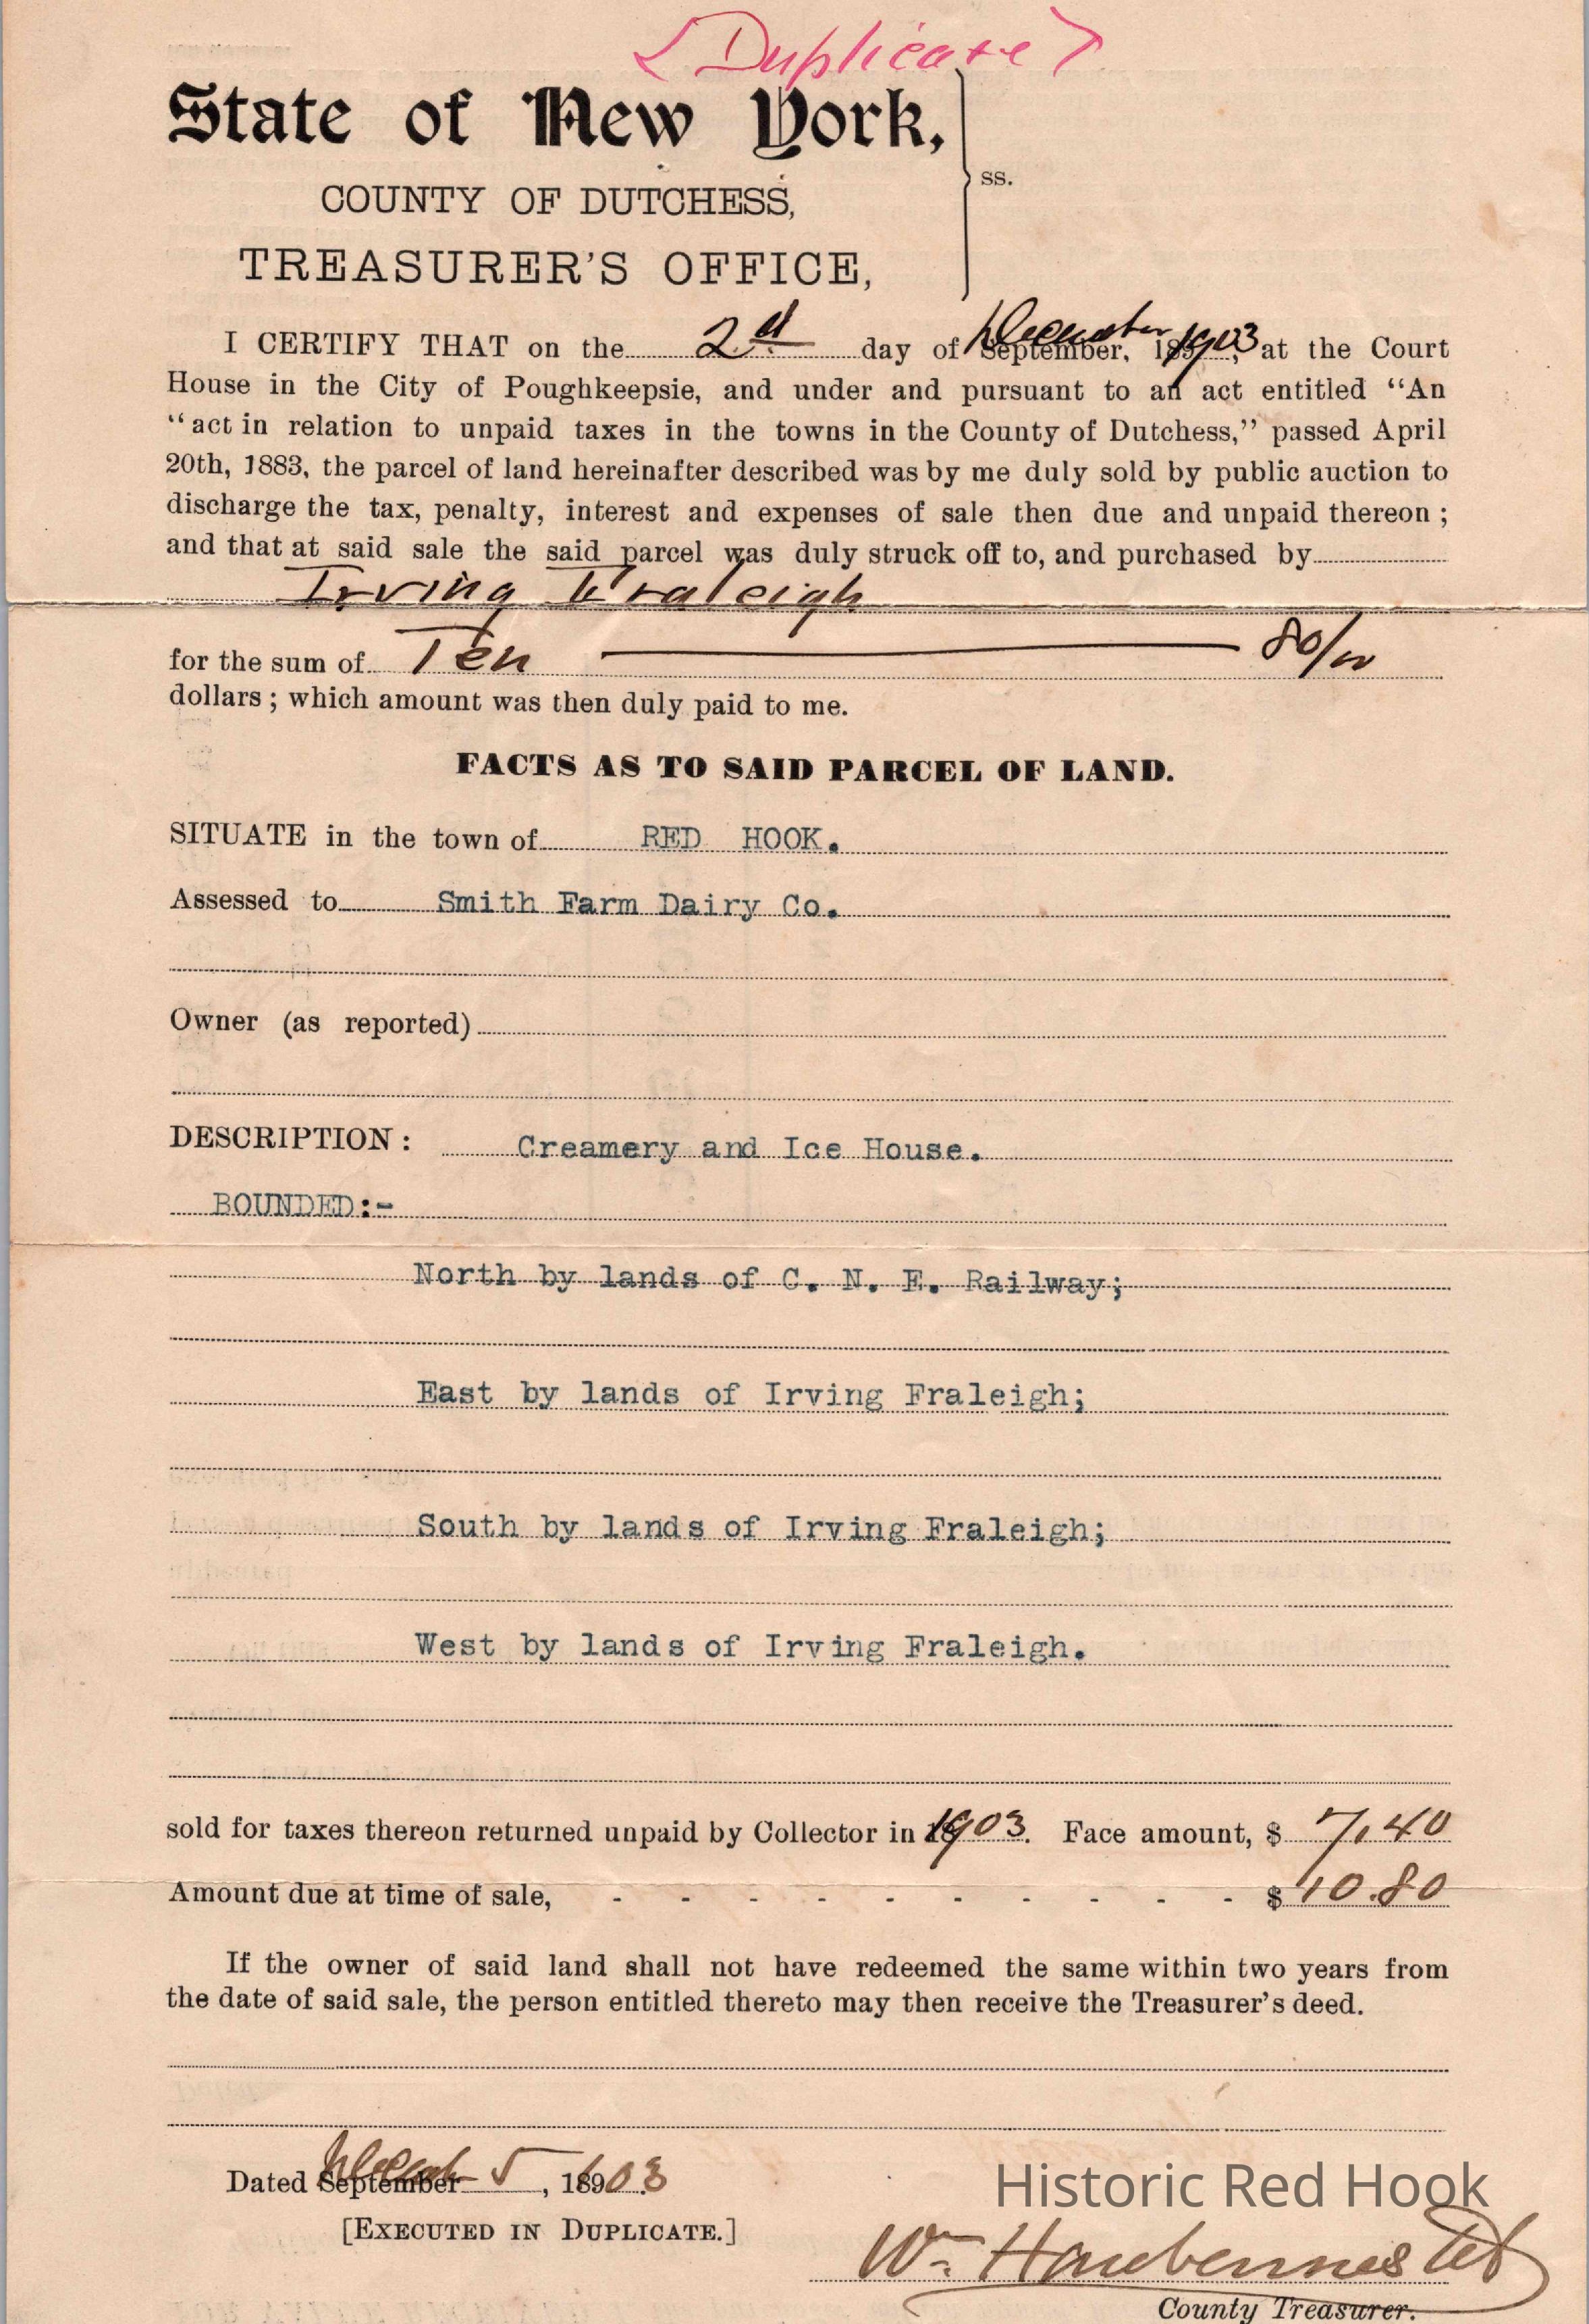 (Duplicate)
State of New York,
ss.
COUNTY OF DUTCHESS,
TREASURER'S OFFICE,
I CERTIFY THAT on the 2d day of September, December 1903, at the Court
House in the City of Poughkeepsie, and under and pursuant to an act entitled "An
"act in relation to unpaid taxes in the towns in the County of Dutchess," passed April
20th, 1883, the parcel of land hereinafter described was by me duly sold by public auction to
discharge the tax, penalty, interest and expenses of sale then due and unpaid thereon;
and that at said sale the said parcel was duly struck off to, and purchased by
Irving Fraleigh
for the sum of Ten 80/100
dollars; which amount was then duly paid to me.
FACTS AS TO SAID PARCEL OF LAND.
SITUATE in the town of RED HOOK.
Assessed to Smith Farm Dairy Co.
Owner (as reported)
DESCRIPTION: Creamery and Ice House.
BOUNDED:-
North by lands of C. N. E. Railway;
East by lands of Irving Fraleigh;
South by lands of Irving Fraleigh;
West by lands of Irving Fraleigh.
sold for taxes thereon returned unpaid by Collector in 1903. Face amount, $ 7.40
Amount due at time of sale, - - - - - - - - - - $ 10.80
If the owner of said land shall not have redeemed the same within two years from
the date of said sale, the person entitled thereto may then receive the Treasurer's deed.
Dated September 5, 1903
Historic Red Hook
[EXECUTED IN DUPLICATE.]
Wm
County Treasurer.